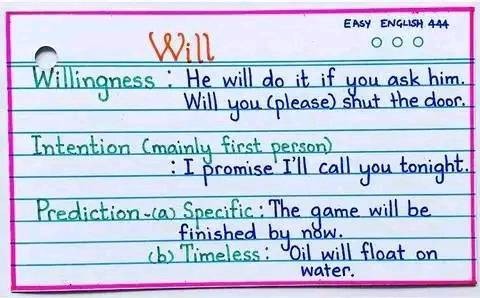 EASY ENGLISH 444
Will
Willingness : He will do it if you ask him.
Will you (please) shut the door.
Intention (mainly first person)
: I promise I'll call you tonight.
Prediction - (a) Specific : The game will be
finished by now.
(b) Timeless : Oil will float on
water.